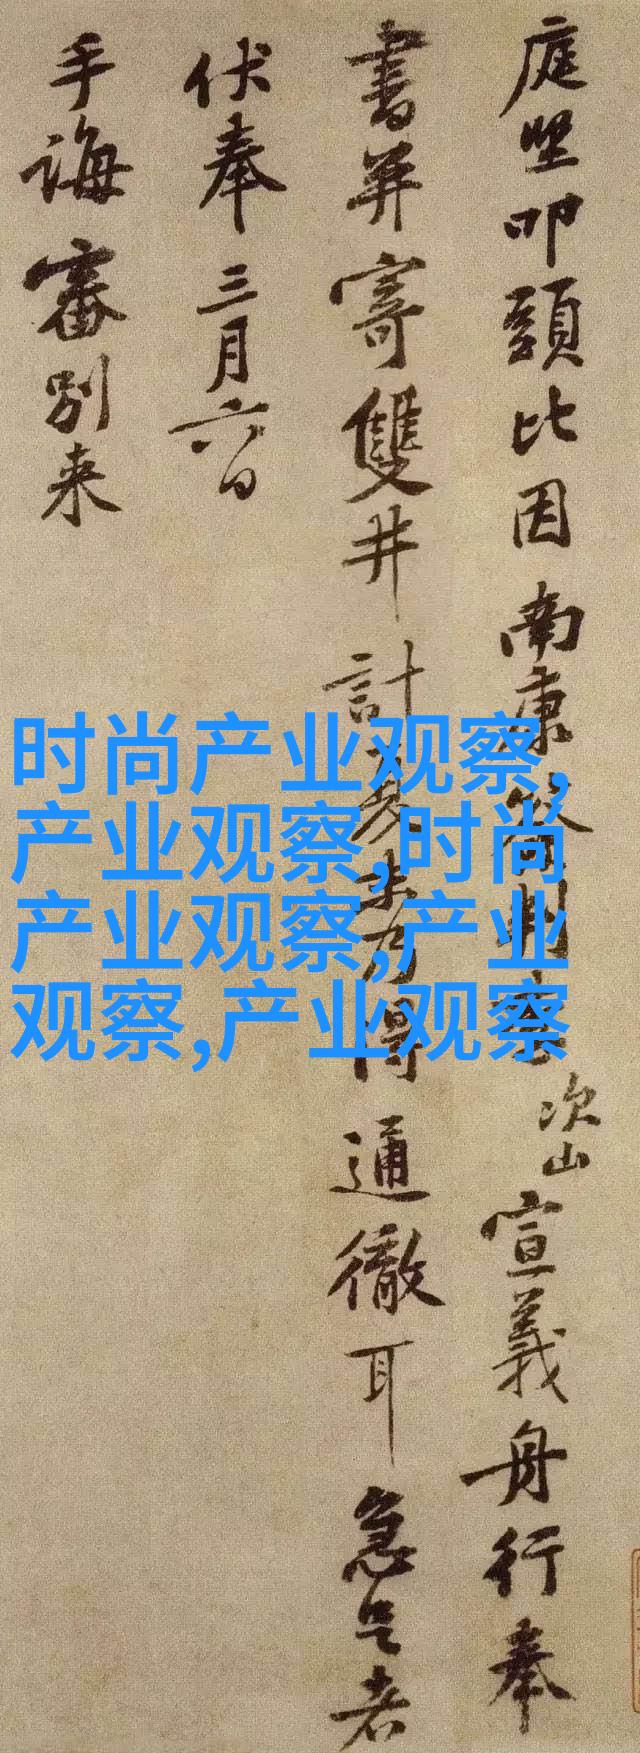 庭堅叩頭比因南康簽判李次山宣義舟行奉
書并寄雙井計程未乃得通徹耳急足者
伏奉三月六日
手誨審別来
时尚产业观察,
产业观察,时尚
产业观察,产业
观察,产业观察